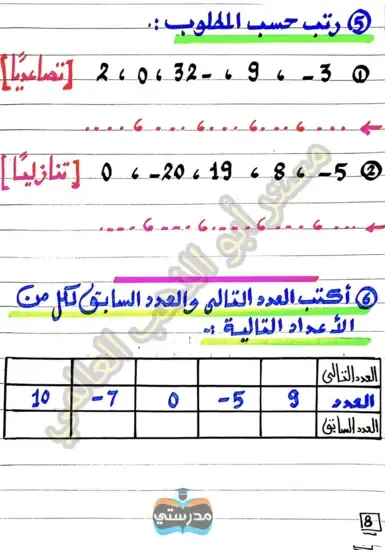 ⑤ رتب حسب المطلوب :.
① 3- ، 9 ، 32- ، 0 ، 2 [تصاعديًا]
← .... ، .... ، .... ، .... ، ....
② 5- ، 8 ، 19 ، 20- ، 0 [تنازليًا]
← .... ، .... ، .... ، .... ، ....
⑥ أكتب العدد التالي والعدد السابق لكل من
الأعداد التالية :.
العدد التالى
العدد 9 5- 0 7- 10
العدد السابق
مدرستي
8